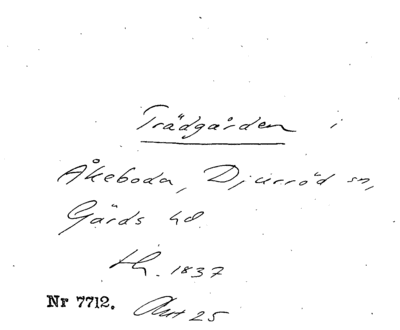 Trädgården i
Åkeboda, Djurröd sn,
Gärds hd
th. 1837
Nr 7712. Akt 25